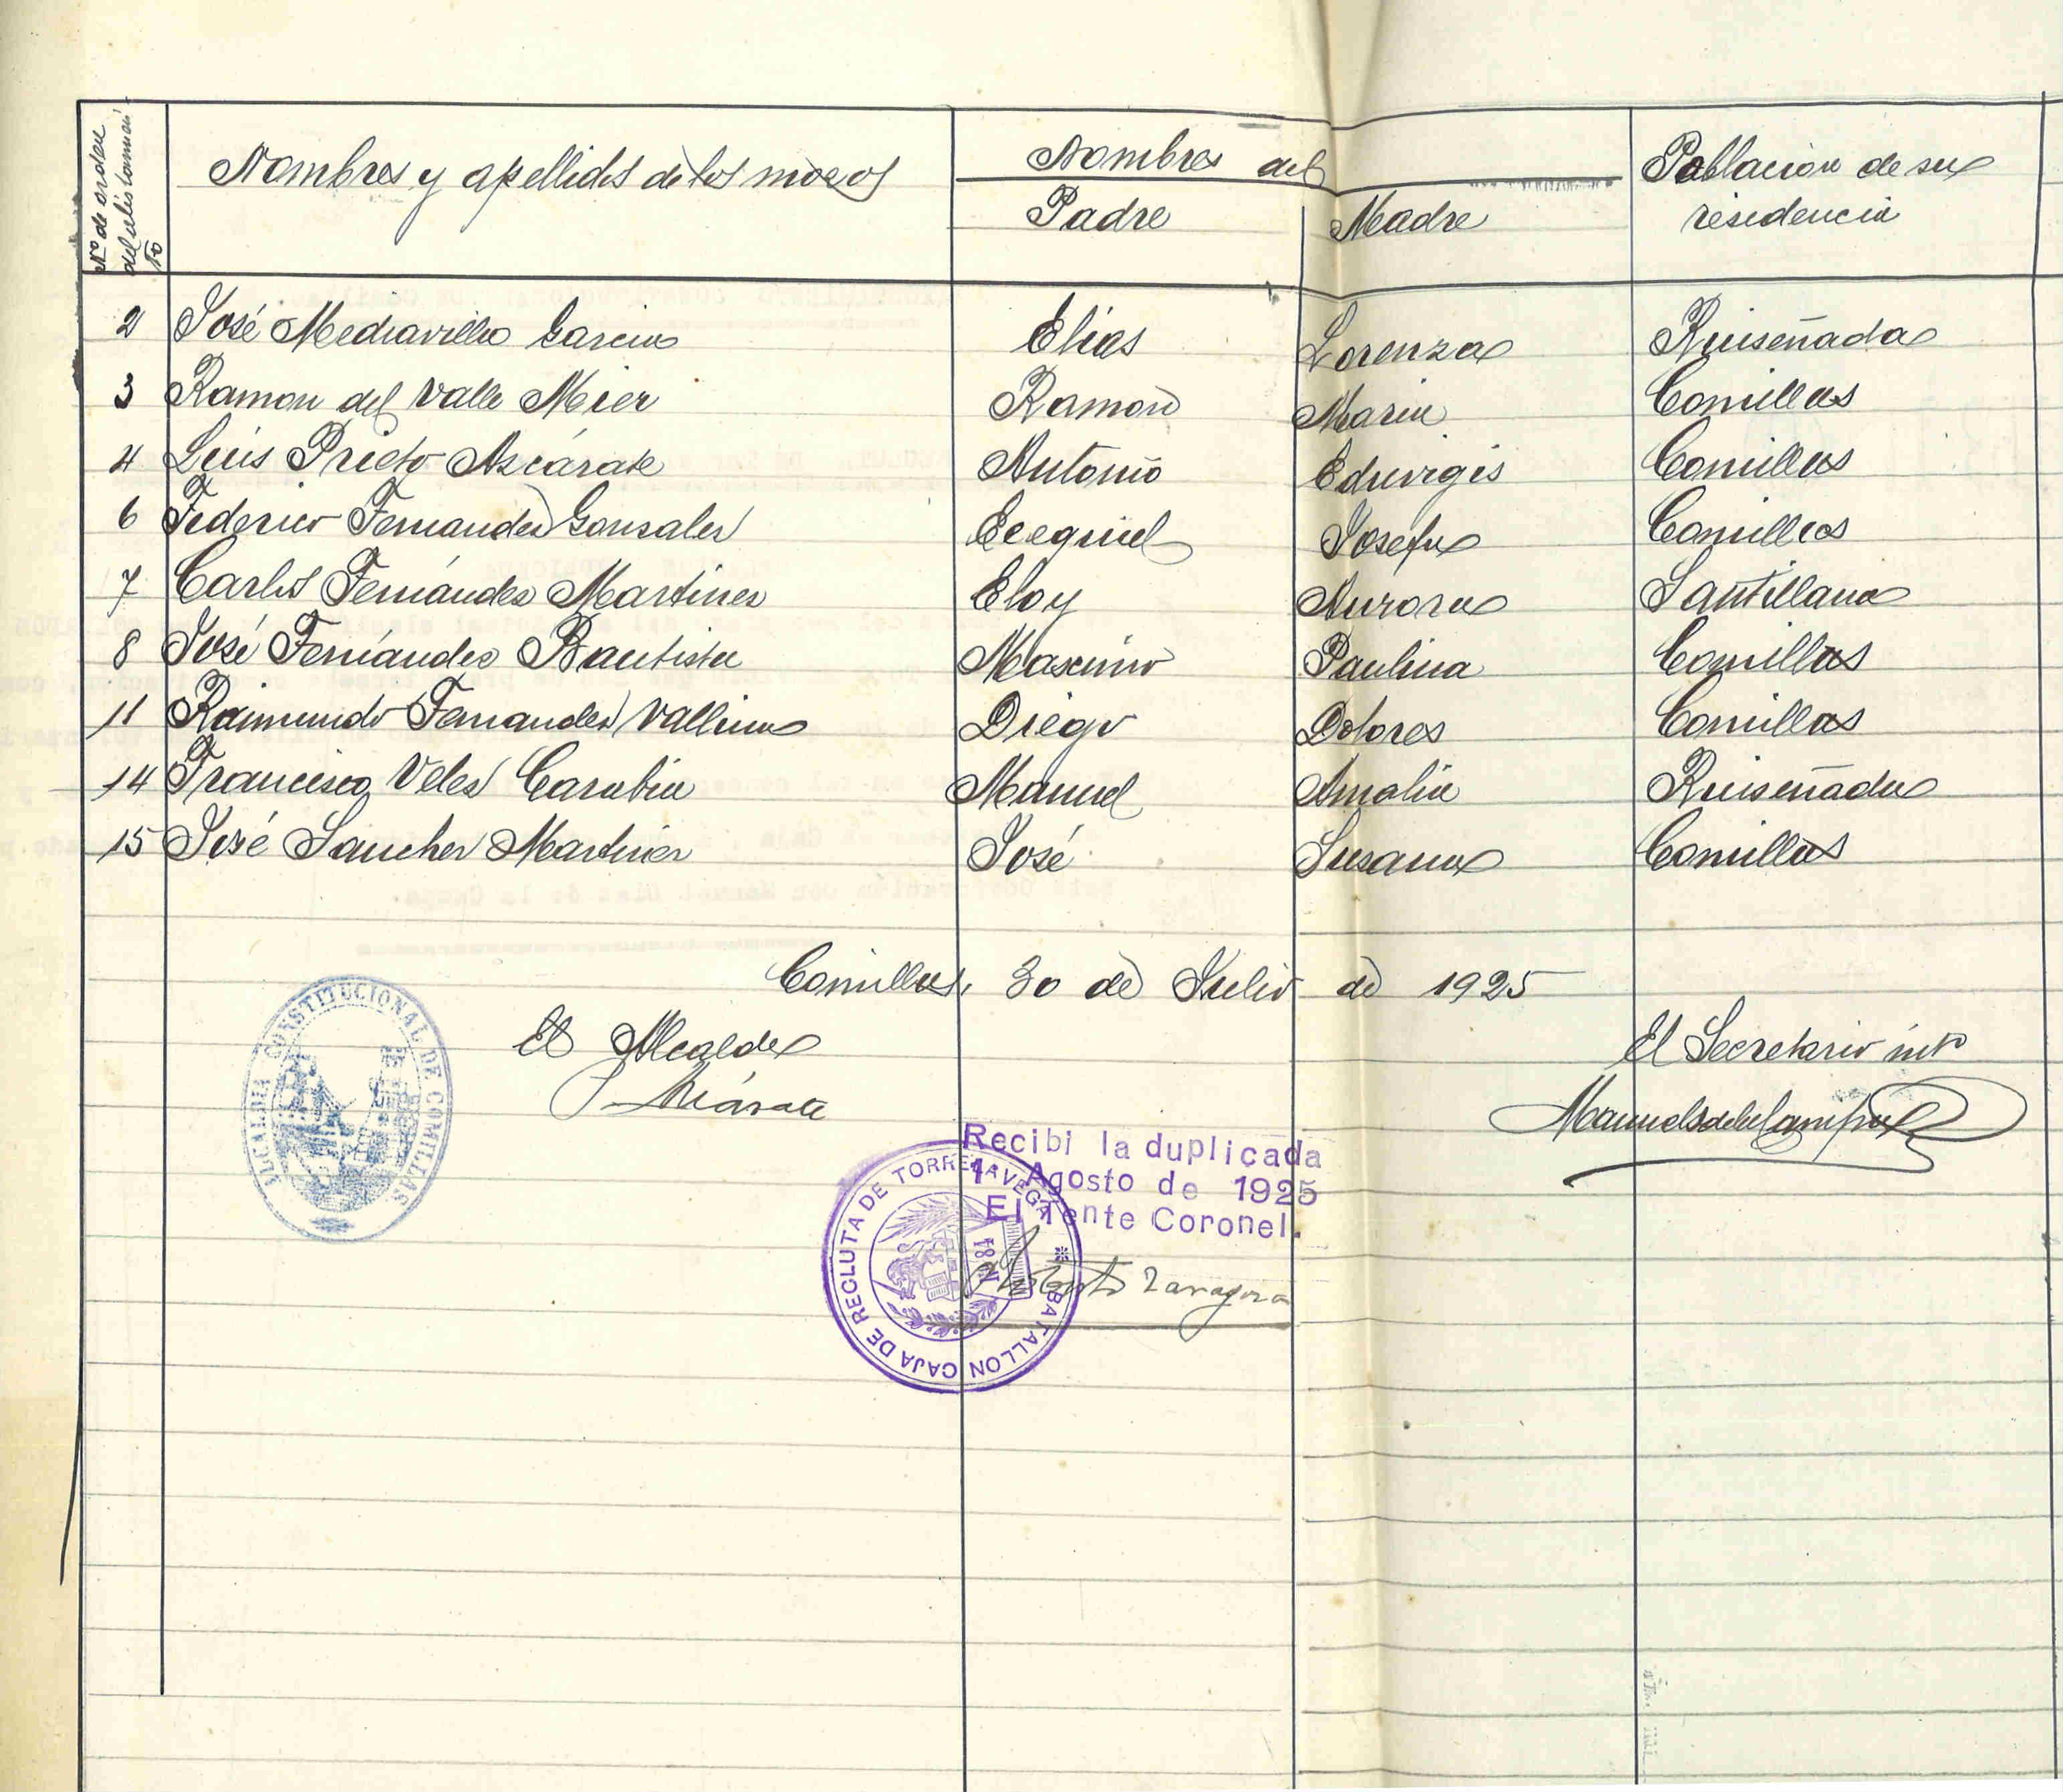 Nº de orden
del alistamien-
to
Nombres y apellidos de los mozos
Nombres del
Padre
Madre
Población de su
residencia
2 José Mediavilla Garcia Elias Lorenza Ruiseñada
3 Ramon del Valle Mier Ramon Maria Comillas
4 Luis Prieto Azcárate Antonio Eduvigis Comillas
6 Federico Fernandez Gonzalez Ecequiel Josefa Comillas
7 Carlos Fernández Martinez Eloy Aurora Santillana
8 José Fernández Bautista Maximo Paulina Comillas
11 Raimundo Fernandez Vallines Diego Dolores Comillas
14 Francisco Velez Carabia Manuel Amalia Ruiseñada
15 José Sanchez Martinez José Susana Comillas
Comillas, 30 de Julio de 1925
El Alcalde
El Secretario intº
ALCALDIA CONSTITUCIONAL DE COMILLAS
Recibi la duplicada
1 Agosto de 1925
El Tente Coronel.
BATALLON CAJA DE RECLUTA DE TORRELAVEGA
Zaragoza